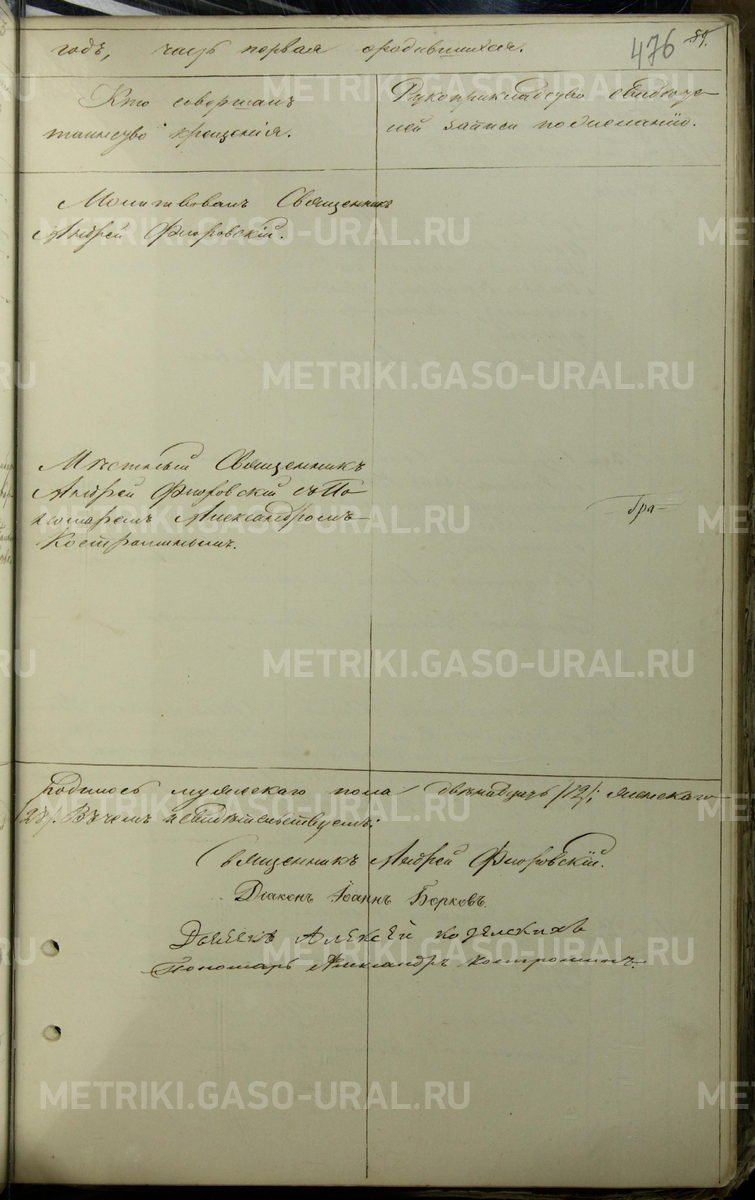 годъ, часть первая о родившихся.
476
Кто совершалъ
таинство крещенія.
Рукоприкладство свидѣте-
лей записи по желанію.
Молитвовалъ Священникъ
Андрей Флоровскій.
Мѣстный Священникъ
Андрей Флоровскій съ По
номаремъ Александромъ
Костроминымъ.
Гра-
Родилось мужескаго пола двѣнадцать /12/; женскаго
Въ чемъ и свидѣтельствуемъ:
Священникъ Андрей Флоровскій.
Діаконъ Іоаннъ Борковъ.
Дьячекъ Алексѣй
Пономарь Александръ Костроминъ.
METRIKI.GASO-URAL.RU